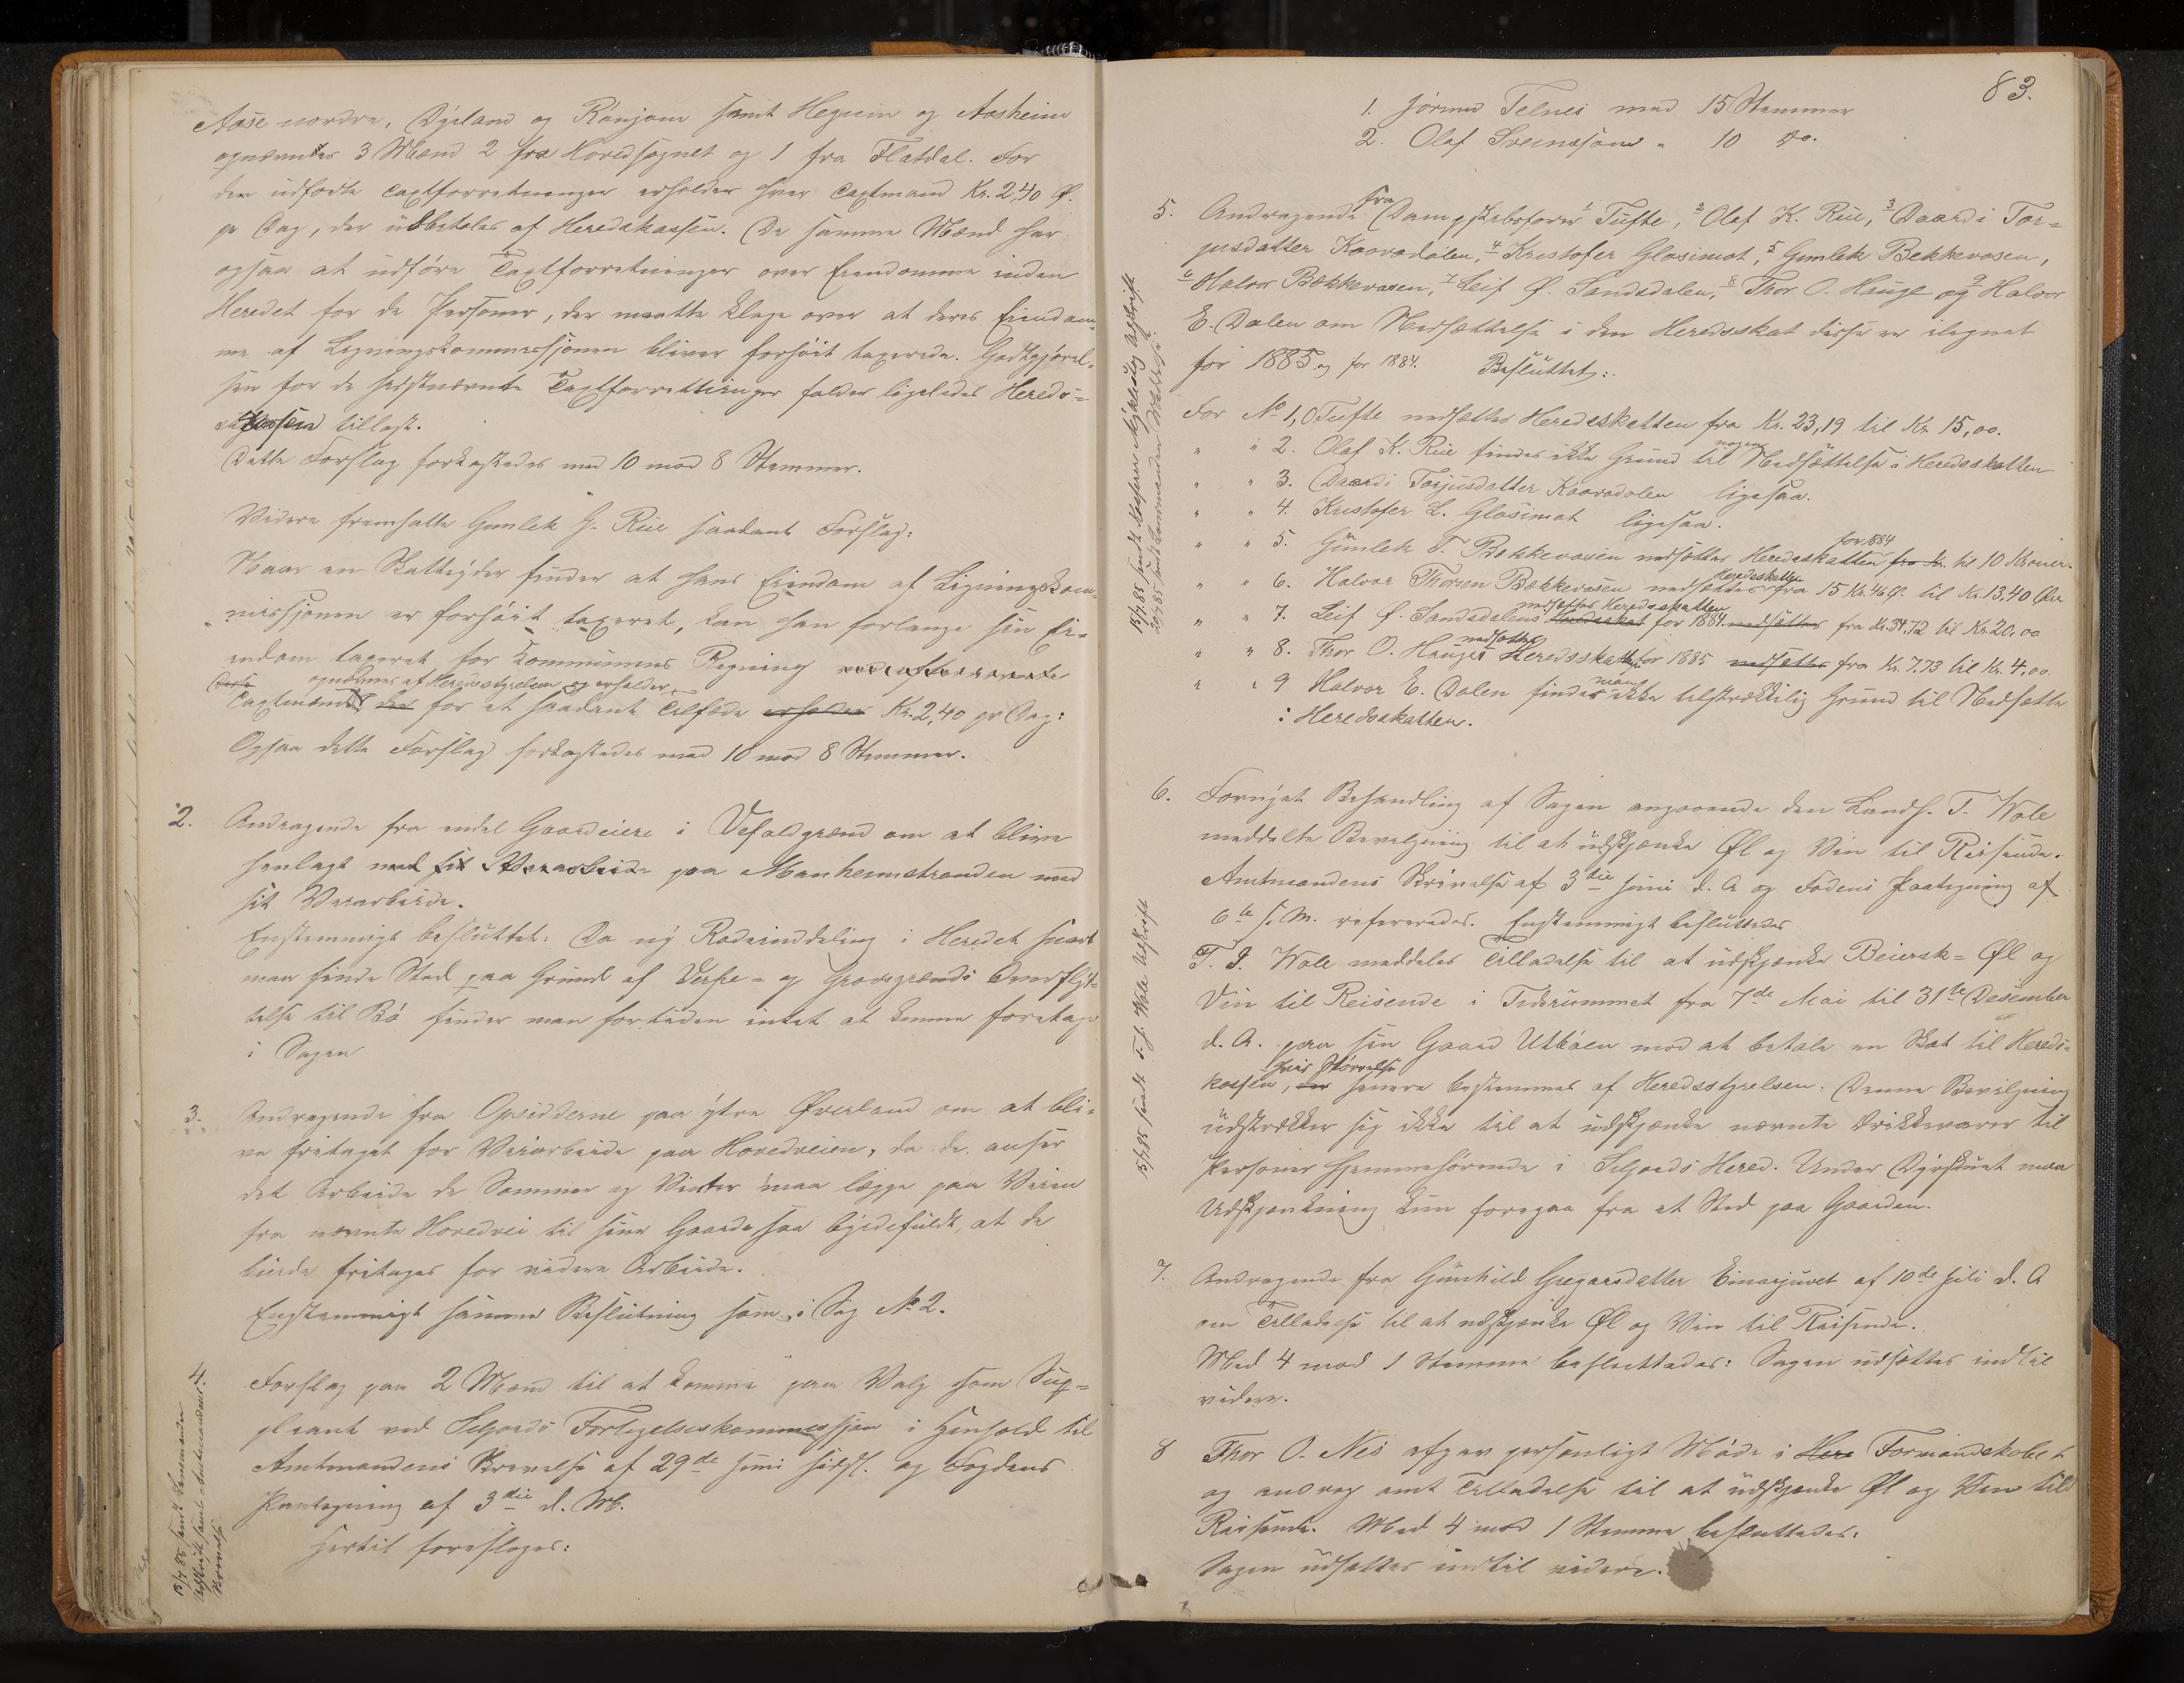 Aase nordre, Dyrland og Rønjom samt Hegrim og Aasheim
opnævntes 3 Mænd 2 fra Hovedsognet og 1 fra Flatdal. For
den udførte Taxtforretninger erholder hver Taxtmand Kr. 2,40 Ø.
pr Dag, der udbetales af Heredskassen. De samme Mænd har
ogsaa at udføre Taxtforretninger over Eiendomme inden
Heredet for de Personer, der maatte klage over at deres Eiendom-
me af Ligningskommissjonen bliver forhøit taxerede. Godtgjørel-
sen for de sidstnævnte Taxtforrettninger falder ligeledes Hereds-
kassen tillast.
Dette Forslag forkastedes med 10 mod 8 Stemmer.
Videre fremsatte Gunlek G. Rue saadant Forslag:
Naar en Skatteyder finder at hans Eiendom af Ligningskom-
missjonen er forhøit taxeret, kan han forlange sin Ei-
endom taxeret for Kommunens Regning
Disse opnævnes af Heredsstyrelsen og erholder
Taxtmænd der for et saadant Tilfælde erholder Kr. 2,40 pr Dag:
Ogsaa dette Forslag forkastedes med 10 mod 8 Stemmer.
2. Andragende fra endel Gaardeiere i Vefaldgrend om at blive
henlagt med sit Veiarbeide paa Manheimstranden med
sit Veiarbeide.
Enstemmigt besluttet: Da ny Rodeinddeling i Heredet snart
maa finde Sted paa Grund af Verpe- og Gravsgrends Overflyt-
telse til Bø finder man fortiden intet at kunne foretage
i Sagen
3. Andragende fra Opsidderne paa ytre Øverland om at bli-
ve fritaget for Veiarbeide paa Hovedveien, da de anser
det Arbeide de Sommer og Vinter maa lægge paa Veien
fra nævnte Hovedvei til sine Gaarde saa byrdefuldt, at de
burde fritages for videre Arbeide.
Enstemmigt samme Beslutning som i Sag No 2.
4. Forslag paa 2 Mænd til at komme paa Valg som Sup-
pleant ved Seljords Forligelseskommissjon i Henhold til
Amtmandens Skrivelse af 29de Juni sidstl. og Fogdens
Paategning af 3die d. M.
Hertil foresloges:
15/7 85 sendt Lensmanden
Udskrift samt Amtmandens
Skrivelse
83.
1. Jørund Telnes med 15 Stemmer
2. Olaf Sveinssøn " 10 Do.
5. Andragende fra Dampskibsfører 1 Tufte, 2 Olaf K. Rue, 3 Daardi Tor-
jusdatter Kaavadalen, 4 Kristofer Glosimot, 5 Gunlek Bekkevasen,
6 Halvor Bækkevasen, 7 Leif Ø. Sandsdalen, 8 Thor O. Hauge og 9 Halvor
E. Dalen om Nedsættelse i den Heredsskat disse er ilignet
for 1885 og for 1884. Besluttet:
For No 1, O Tufte nedsættes Heredsskatten fra Kr. 23,19 til Kr 15,00.
" " 2. Olaf K. Rue findes ikke Grund til nogen Nedsættelse i Heredsskatten
" " 3. Daardi Torjusdatter Kaavadalen ligesaa.
" " 4. Kristofer L. Glosimot ligesaa.
" " 5. Gunlek T. Bekkevasen nedsættes Heredsskatten for 1884 fra Kr. til 10 Kroner.
" " 6. Halvor Thorsen Bekkevasen nedsættes Heredsskatten fra 15 Kr. 46 Ø. til Kr. 13,40 Øre
" " 7. Leif Ø. Sandsdalens nedsættes Heredsskatten Heredsskat for 1884 nedsættes fra Kr. 34,72 til Kr 20,00
" " 8. Thor O. Hauges nedsættes Heredsskatten for 1885 nedsættes fra Kr. 7.73 til Kr. 4,00.
" " 9 Halvor E. Dalen finder man ikke tilstrækkelig Grund til Nedsætte
i Heredsskatten.
6. Fornyet Behandling af Sagen angaaende den Landh. T. Wale
meddelte Bevilgning til at udskjænke Øl og Vin til Reisende.
Amtmandens Skrivelse af 3die Juni d. A og Fodens Paategning af
6te s. M. refereredes. Enstemmigt besluttedes
T. J. Wale meddeles Tilladelse til at udskjænke Beiersk-Øl og
Vin til Reisende i Tidsrummet fra 7de Mai til 31te Desember
d. A. paa sin Gaard Utbøen mod at betale en Skat til Hereds-
kassen, hvis Størrelse der senere bestemmes af Heredsstyrelsen. Denne Bevilgning
udstrækker sig ikke til at udskjænke nævnte Drikkevarer til
Personer hjemmehørende i Seljords Hered. Under Dyrskuet maa
Udskjænkning kun foregaa fra et Sted paa Gaarden.
7. Andragende fra Gunhild Gregarsdatter Einarjuvet af 10de Juli d. A
om Tilladelse til at udskjænke Øl og Vin til Reisende.
Med 4 mod 1 Stemme besluttedes: Sagen udsættes indtil
videre.
8 Thor O. Nes afgav personligt Møde i Here Formandskabet
og androg amt Tilladelse til at udskjænke Øl og Vin till
Reisende. Med 4 mod 1 Stemme besluttedes:
Sagen udsættes indtil videre.
15/7 85 sendt Kasserer Nykaas Udskrift
15/7 85 sendt T. J. Wale Udskrift